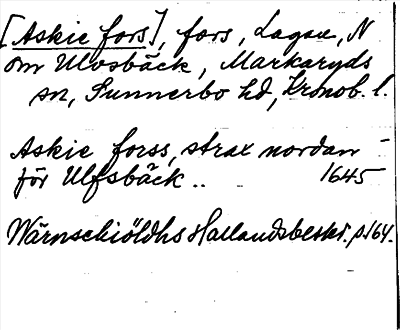 [Askie fors], fors, Lagan, N
om Ulvsbäck, Markaryds
sn, Sunnerbo hd, Kronob. l.
Askie forss, strax nordan
för Ulfsbäck .. 1645
Wärnschiöldhs Hallandsbeskr. p. 164.